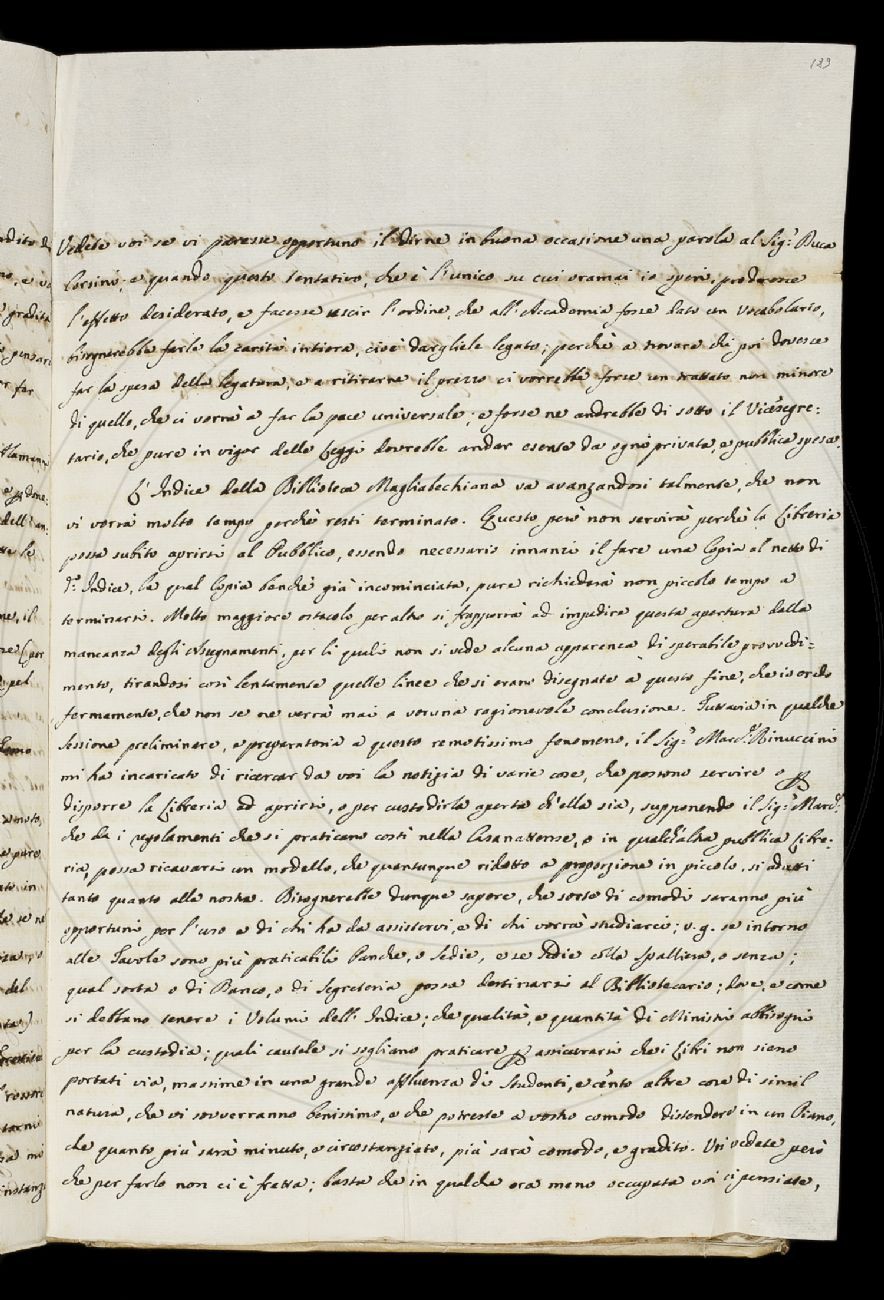 129
Vedete voi se vi paresse opportuno il dirne in buona occasione una parola al Sig.r Duca
Corsini; e quando questo tentativo, che è l'unico su cui oramai io speri, producesse
l'effetto desiderato, e facesse uscir l'ordine, che all'Accademia fosse dato un Vocabolario,
bisognerebbe farle la carità intiera, cioè dargliele legato; perchè a trovare chi poi dovesse
far la spesa della legatura, e a ritirarne il prezzo ci vorrebbe forse un trattato non minore
di quello, che ci vorrà a far la pace universale; e forse ne andrebbe di sotto il Vicesegre:
tario, che pure in vigor delle Leggi dovrebbe andar esente da ogni privata, e pubblica spesa.
L'Indice della Biblioteca Magliabechiana va avanzandosi talmente, che non
vi vorrà molto tempo perchè resti terminato. Questo però non servirà perchè la Libreria
possa subito aprirsi al Pubblico, essendo necessario innanzi il fare una Copia al netto di
d.o Indice, la qual Copia benchè già incominciata, pure richiederà non piccolo tempo a
terminarsi. Molto maggiore ostacolo per altro si frapporrà ad impedire questa apertura dalla
mancanza degli Assegnamenti, per li quali non si vede alcuna apparenza di sperabile provvedi=
mento, tirandosi così lentamente quelle linee che si erano disegnate a questo fine, che io credo
fermamente, che non se ne verrà mai a veruna ragionevole conclusione. Tuttavia in qualche
Sessione preliminare, e preparatoria a questo remotissimo fenomeno, il Sig.r March.e Rinuccini
mi ha incaricato di ricercar da voi la notizia di varie cose, che possono servire o p
disporre la Libreria ad aprirsi, o per custodirla aperta ch'ella sia, supponendo il Sig.r March.e
che da i regolamenti che si praticano costì nella Casanattense, o in qualch'altra pubblica Libre:
ria, possa ricavarsi un modello, che quantunque ridotto a proporzione in piccolo, si adatti
tanto quanto alla nostra. Bisognerebbe dunque sapere, che sorte di comodi saranno più
opportuni per l'uso e di chi ha da assistervi, e di chi vorrà studiarci; v.g. se intorno
alle Tavole sono più praticabili Panche, o Sedie, e se Sedie colla Spalliera, o senza;
qual sorta o di Banco, o di Segreteria possa destinarsi al Bibliotecario; dove, e come
si debbano tenere i Volumi dell'Indice; che qualità, e quantità di Ministri abbisogni
per la custodia; quali cautele si sogliano praticare p assicurarsi che i Libri non sieno
portati via, massime in una grande affluenza di Studenti, e cento altre cose di simil
natura, che vi sovverranno benissimo, e che potreste a vostro comodo distendere in un Piano,
che quanto più sarà minuto, e circostanziato, più sarà comodo, e gradito. Voi vedete però
che per farlo non ci è fretta; basta che in qualche ora meno occupata voi ci pensiate,